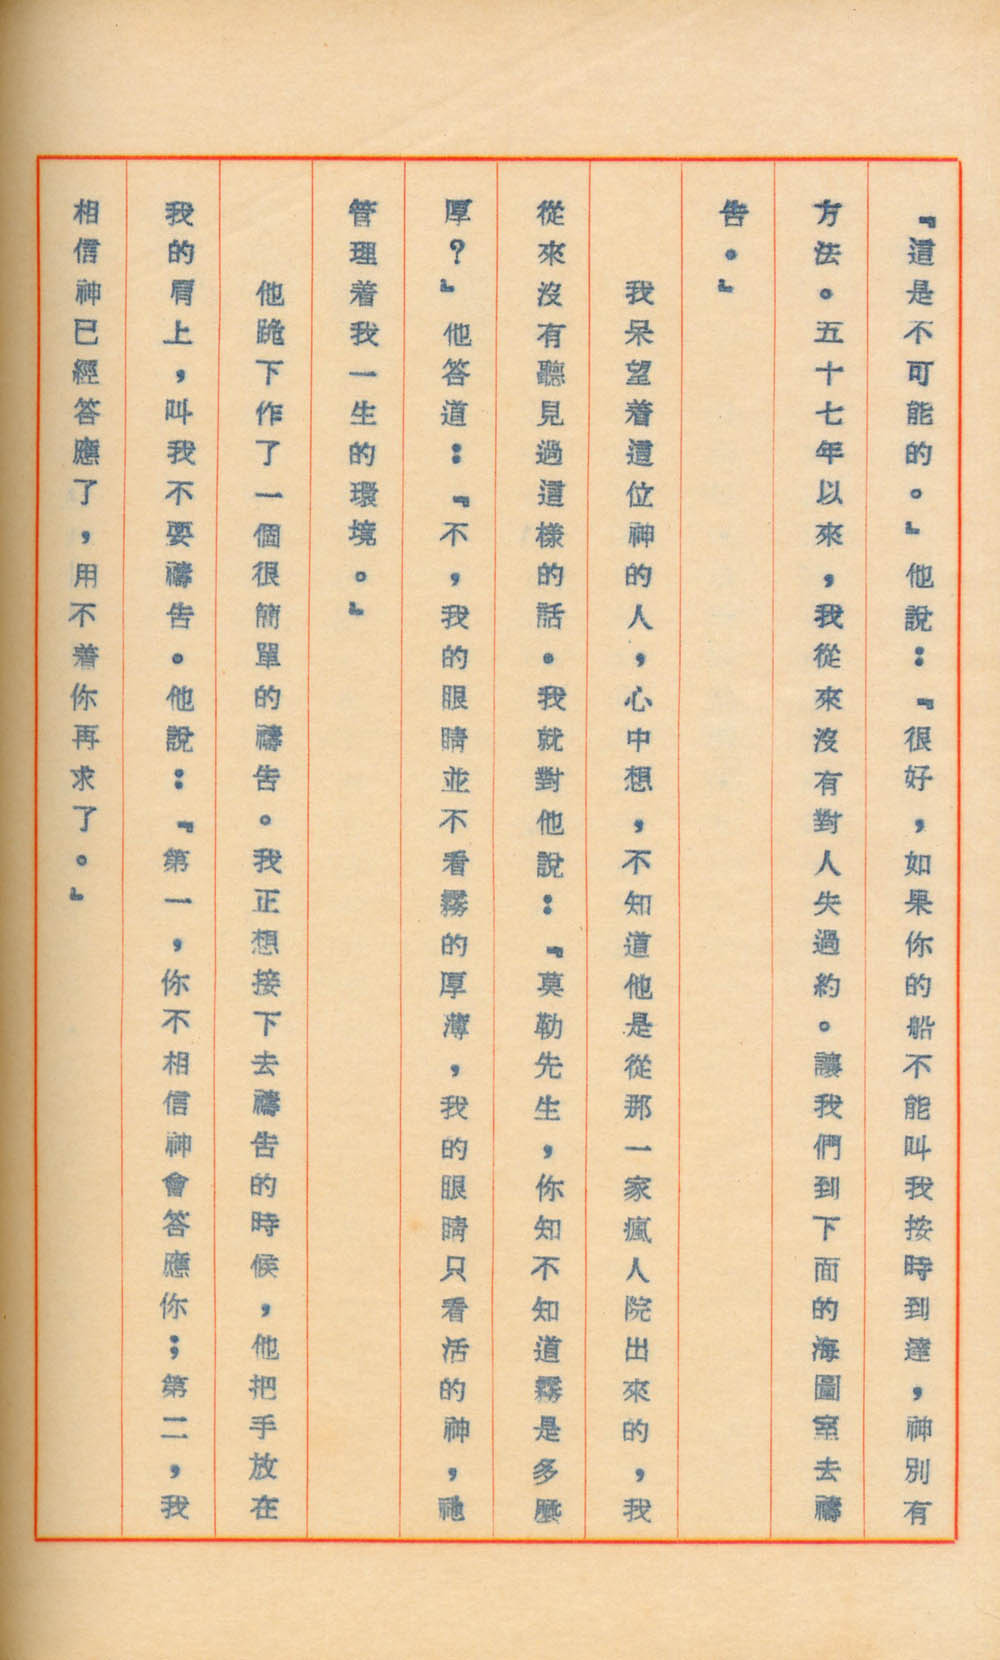 『這是不可能的。』他說：『很好，如果你的船不能叫我按時到達，神別有
方法。五十七年以來，我從來沒有對人失過約。讓我們到下面的海圖室去禱
告。』
我呆望着這位神的人，心中想，不知道他是從那一家瘋人院出來的，我
從來沒有聽見過這樣的話。我就對他說：『莫勒先生，你知不知道霧是多麼
厚？』他答道：『不，我的眼睛並不看霧的厚薄，我的眼睛只看活的神，祂
管理着我一生的環境。』
他跪下作了一個很簡單的禱告。我正想接下去禱告的時候，他把手放在
我的肩上，叫我不要禱告。他說：『第一，你不相信神會答應你；第二，我
相信神已經答應了，用不着你再求了。』